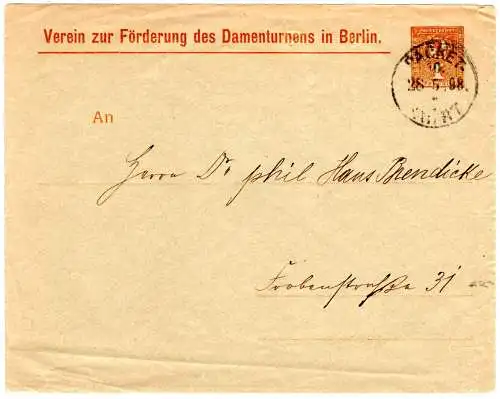 Verein zur Förderung des Damenturnens in Berlin.
PACKET
26 5 98.
An
Herrn Dr. phil Hans Brendicke
Frobenstraße 31